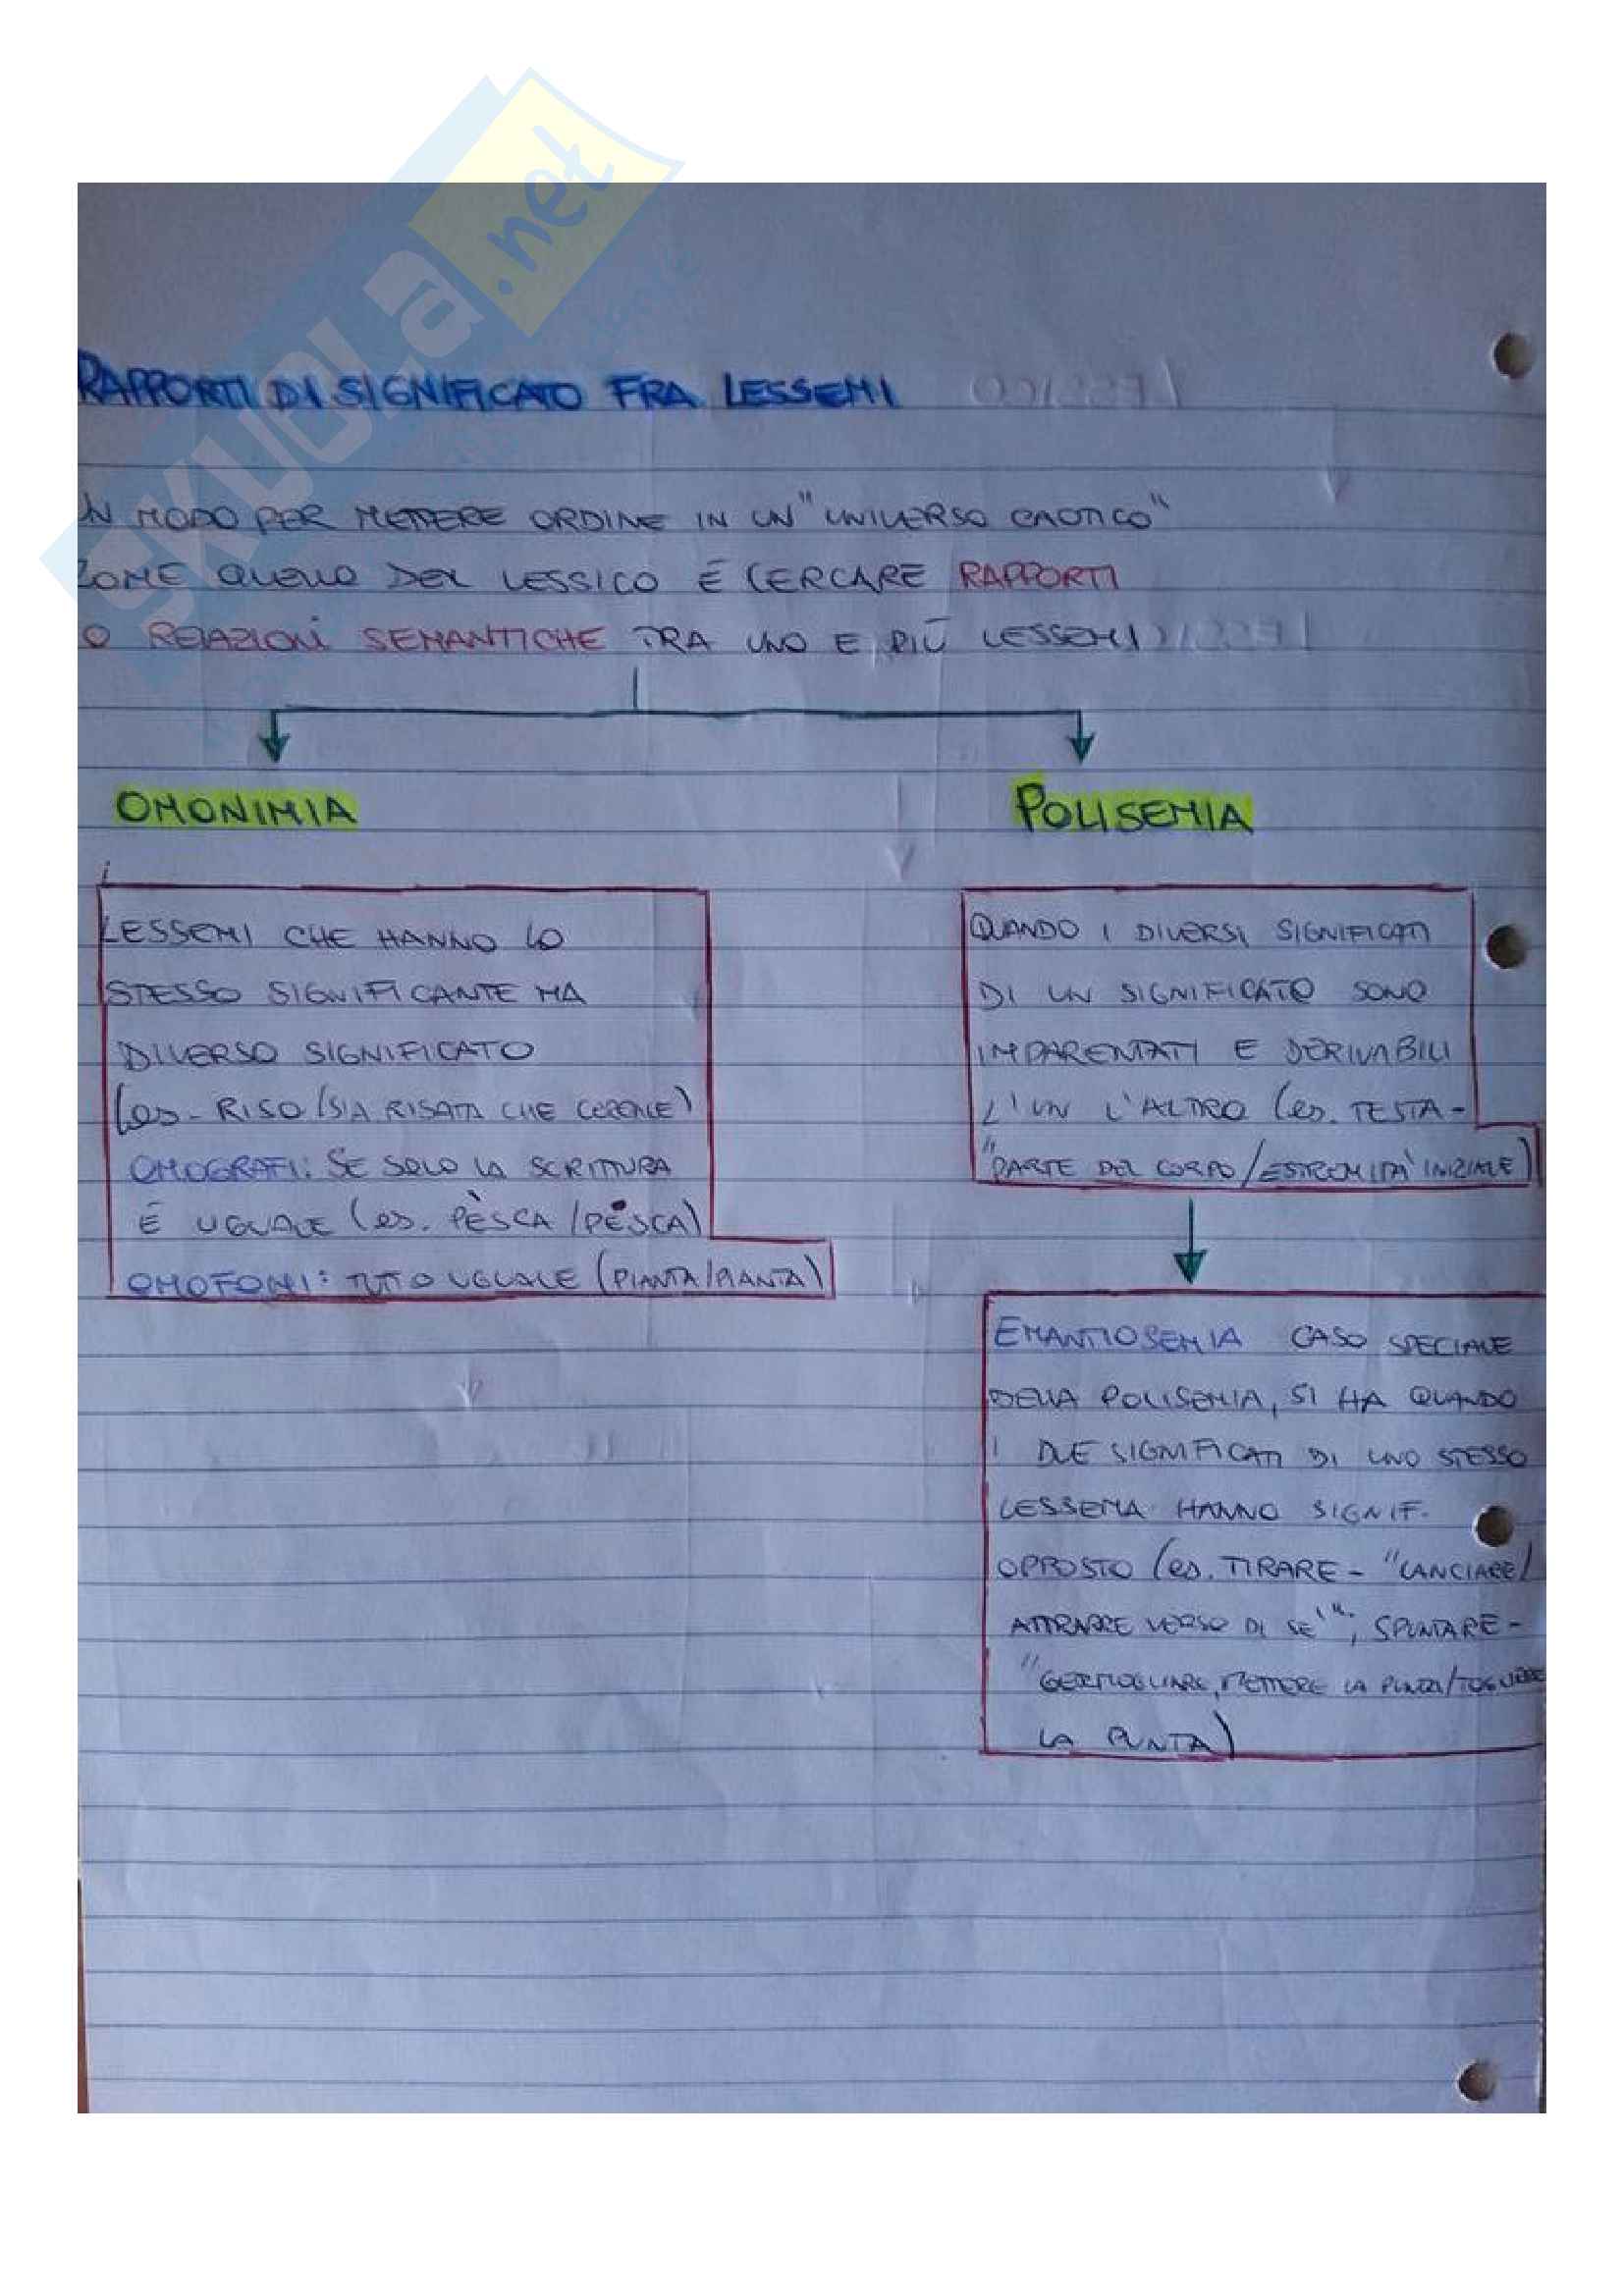 SKUOLA.net
RAPPORTI DI SIGNIFICATO FRA LESSEMI
UN MODO PER METTERE ORDINE IN UN "UNIVERSO CAOTICO"
COME QUELLO DEL LESSICO É CERCARE RAPPORTI
O RELAZIONI SEMANTICHE TRA UNO E PIÙ LESSEMI
OMONIMIA
LESSEMI CHE HANNO LO
STESSO SIGNIFICANTE MA
DIVERSO SIGNIFICATO
(es. RISO/SIA RISATA CHE CEREALE)
OMOGRAFI: SE SOLO LA SCRITTURA
É UGUALE (es. PÈSCA/PÉSCA)
OMOFONI: TUTTO UGUALE (PIANTA/PIANTA)
POLISEMIA
QUANDO I DIVERSI SIGNIFICATI
DI UN SIGNIFICATO SONO
IMPARENTATI E DERIVABILI
L'UN L'ALTRO (es. TESTA-
"PARTE DEL CORPO/ESTREMITA' INIZIALE)
EMANTIOSEMIA CASO SPECIALE
DELLA POLISEMIA, SI HA QUANDO
I DUE SIGNIFICATI DI UNO STESSO
LESSEMA HANNO SIGNIF.
OPPOSTO (es. TIRARE - "LANCIARE/
ATTRARRE VERSO DI SE'"; SPUNTARE-
"GERMOGLIARE, METTERE LA PUNTA/TOGLIERE
LA PUNTA)